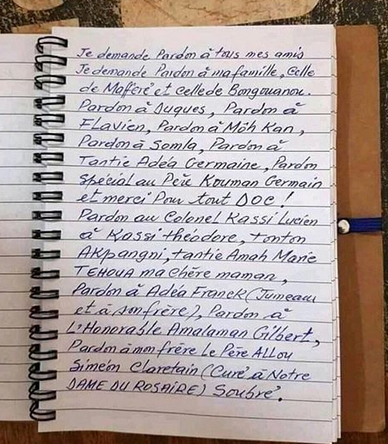 Je demande Pardon à tous mes amis
Je demande Pardon à ma famille, celle
de Maféré et celle de Bongouanou.
Pardon à Duques, Pardon à
Flavien, Pardon à Möh Kan,
Pardon à Somla, Pardon à
Tantie Adéa Germaine, Pardon
Spécial au Père Kouman Germain
et merci Pour tout DOC !
Pardon au Colonel Kassi Lucien
à Kassi théodore, tonton
AKpangni, tantie Amah Marie
TEHOUA ma chère maman,
Pardon à Adéa Franck (Jumeau
et à son frère), Pardon à
L'Honorable Amalaman Gilbert,
Pardon à mon frère Le Père ALLOU
Siméon Claretain (Curé à Notre
DAME DU ROSAIRE) Soubré.